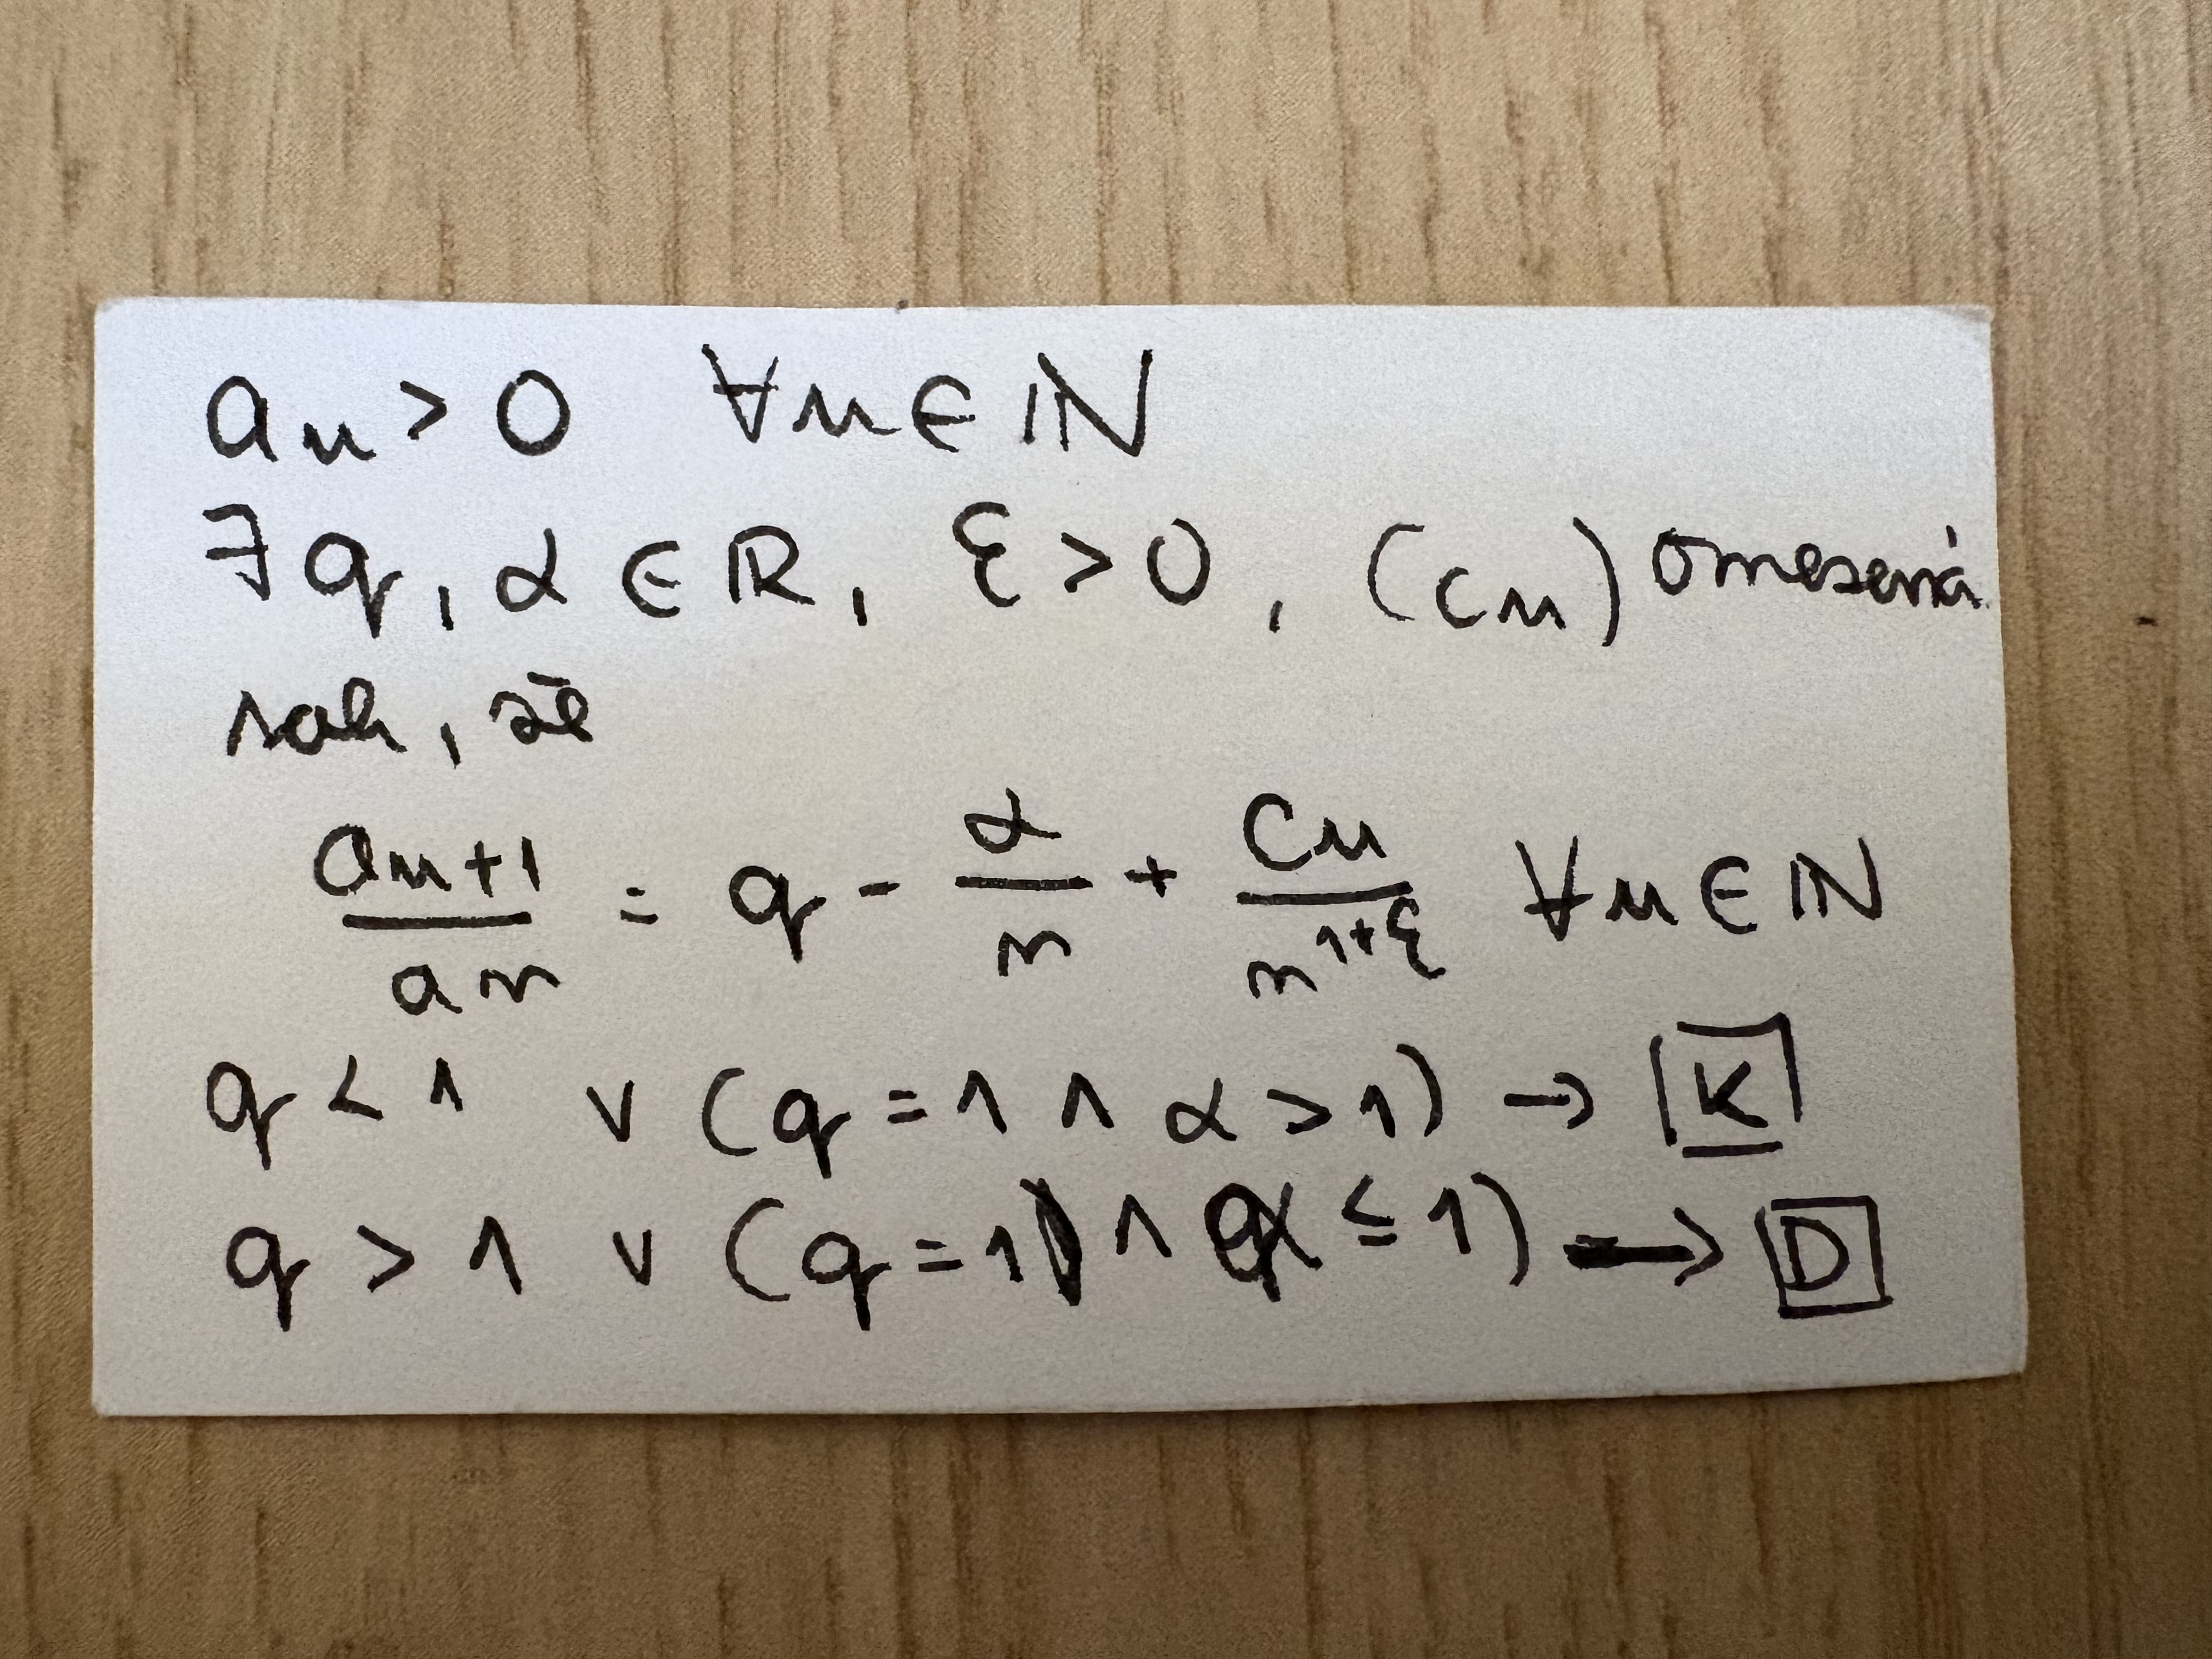 aₙ > 0 ∀n ∈ ℕ
∃ q, α ∈ ℝ, ε > 0, (cₙ) omezená
tak, že
aₙ₊₁/aₙ = q - α/n + cₙ/n^(1+ε) ∀n ∈ ℕ
q < 1 ∨ (q = 1 ∧ α > 1) → K
q > 1 ∨ (q = 1 ∧ α ≤ 1) → D